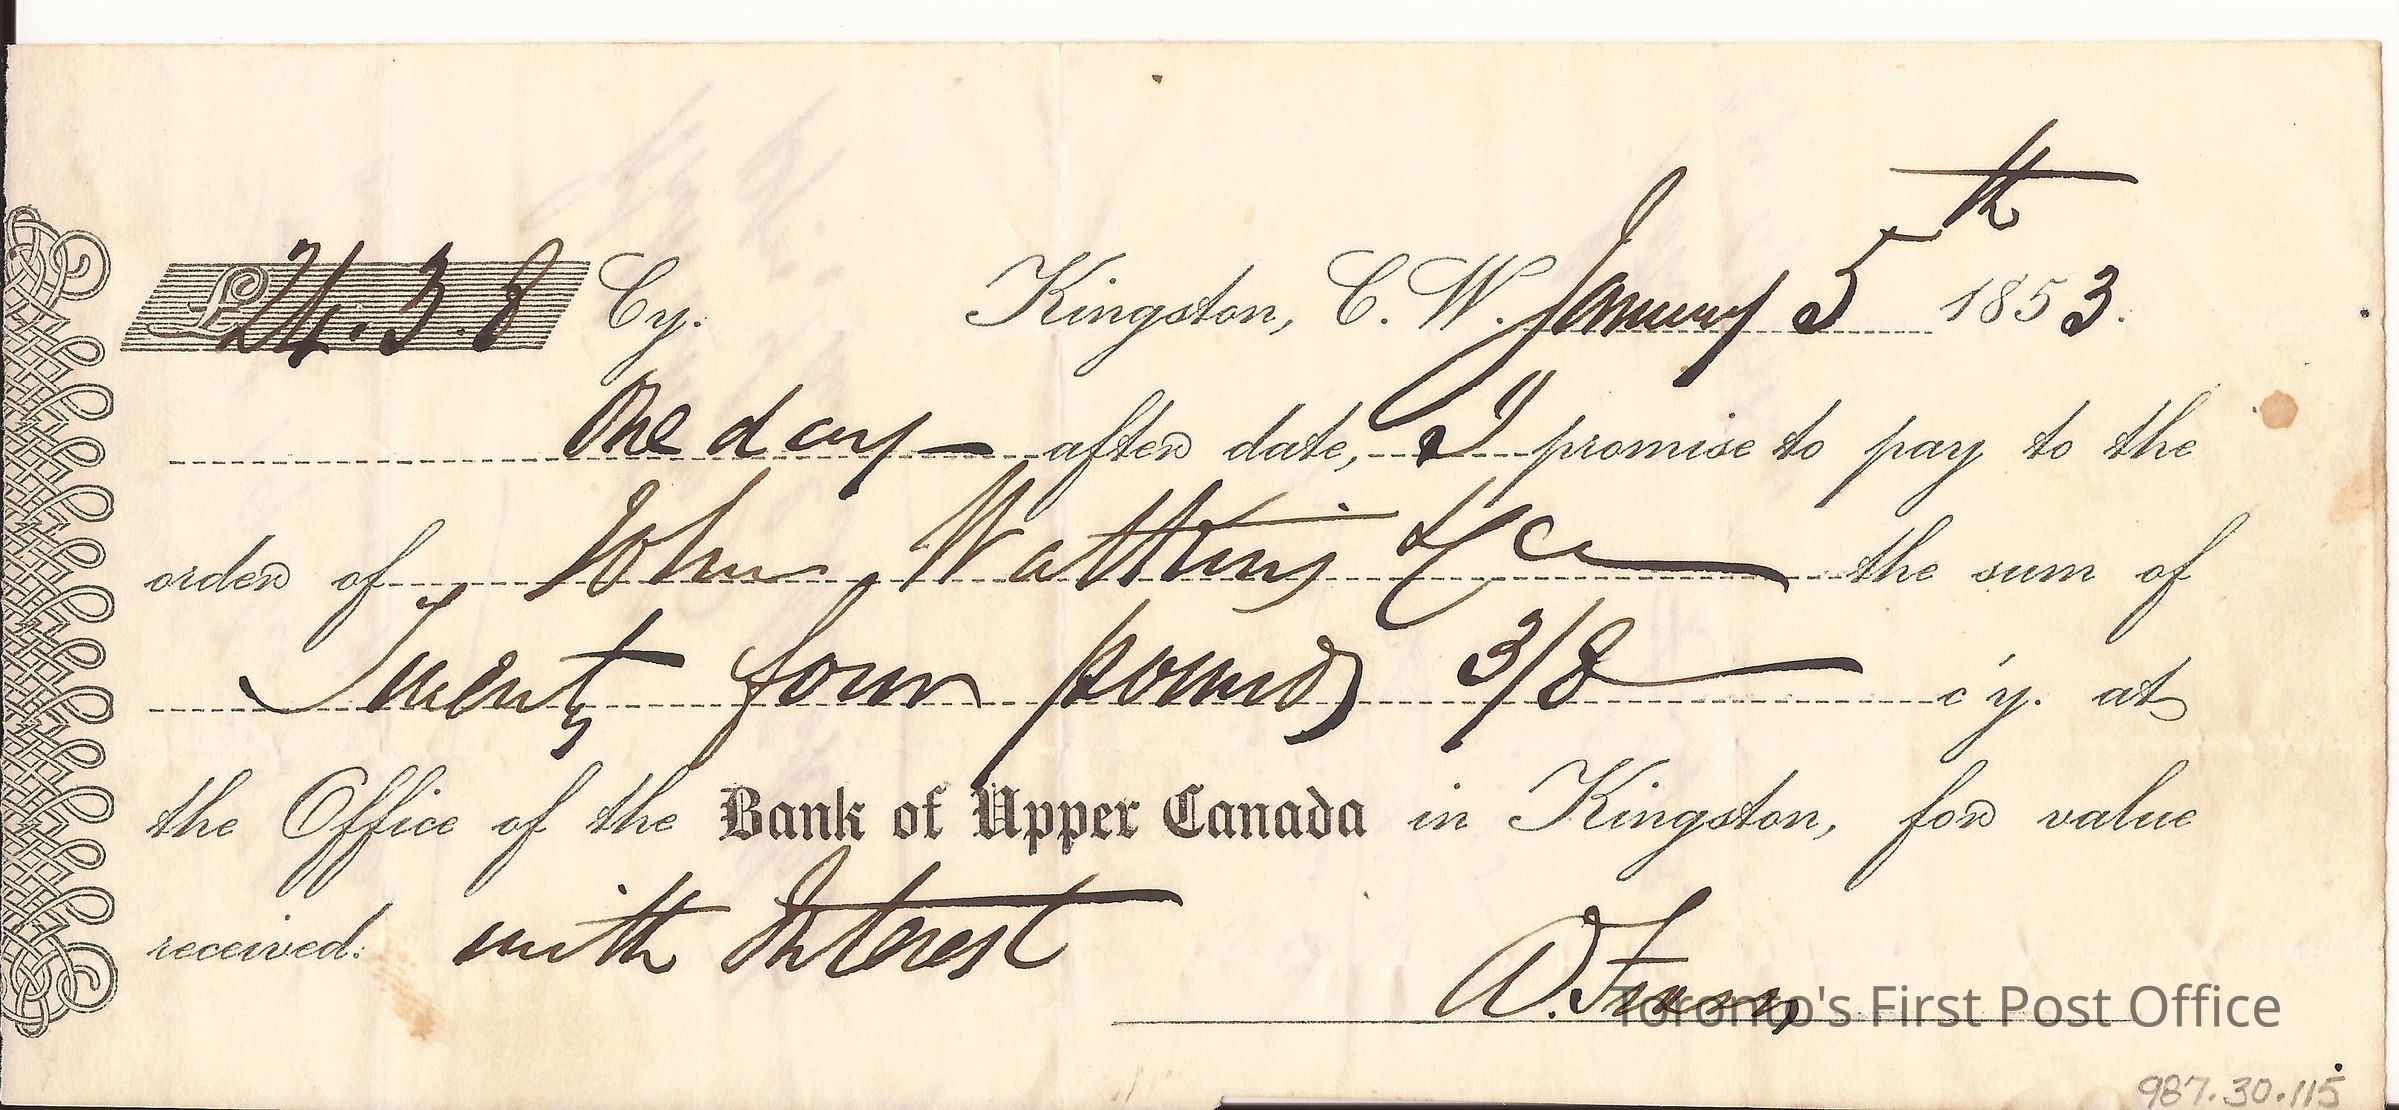 £24.3.8 Cy. Kingston, C. W. January 5th 1853.
One day after date, I promise to pay to the
order of John Watkins & Co the sum of
Twenty four pounds 3/8 cy. at
the Office of the Bank of Upper Canada in Kingston, for value
received: with Interest
A.
Toronto's First Post Office
987.30.115